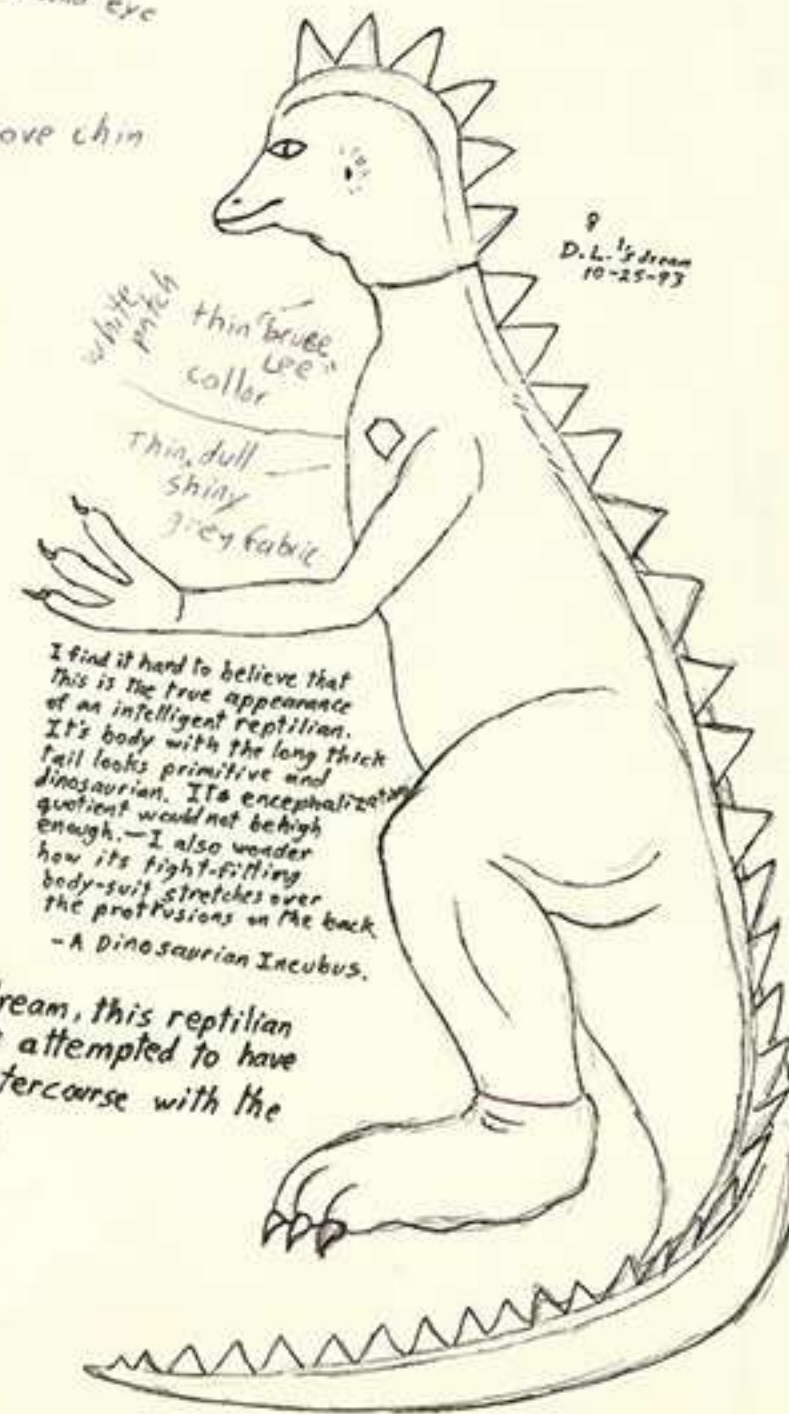 eye
ove chin
8
D.L.'s dream
10-25-93
white
patch
thin "bruce
Lee"
collar
Thin, dull
shiny
grey fabric
I find it hard to believe that
this is the true appearance
of an intelligent reptilian.
It's body with the long thick
tail looks primitive and
dinosaurian. Its encephalization
quotient would not be high
enough.—I also wonder
how its tight-fitting
body-suit stretches over
the protrusions on the back
-A Dinosaurian Incubus.
ream, this reptilian
attempted to have
tercourse with the